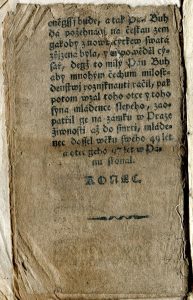 eněgssj bude, a tak Pán Buh
da požehnánj na českau zem
gakoby znowu cyrkew swatá
zřjzena byla, y odpowěděl cý-
sař, degž to milý Pán Buh
aby mnohým čechům milost-
denstwj roznjknauti ráčil, pak
potom wzal toho otce y toho
syna mládence slepého, zao-
patřil ge na zámku w Praze
žiwnostj až do smrti, mláde-
nec dossel wěku swého 49 let
a otec geho 97 let w Pá-
nu skonal.
KONEC.